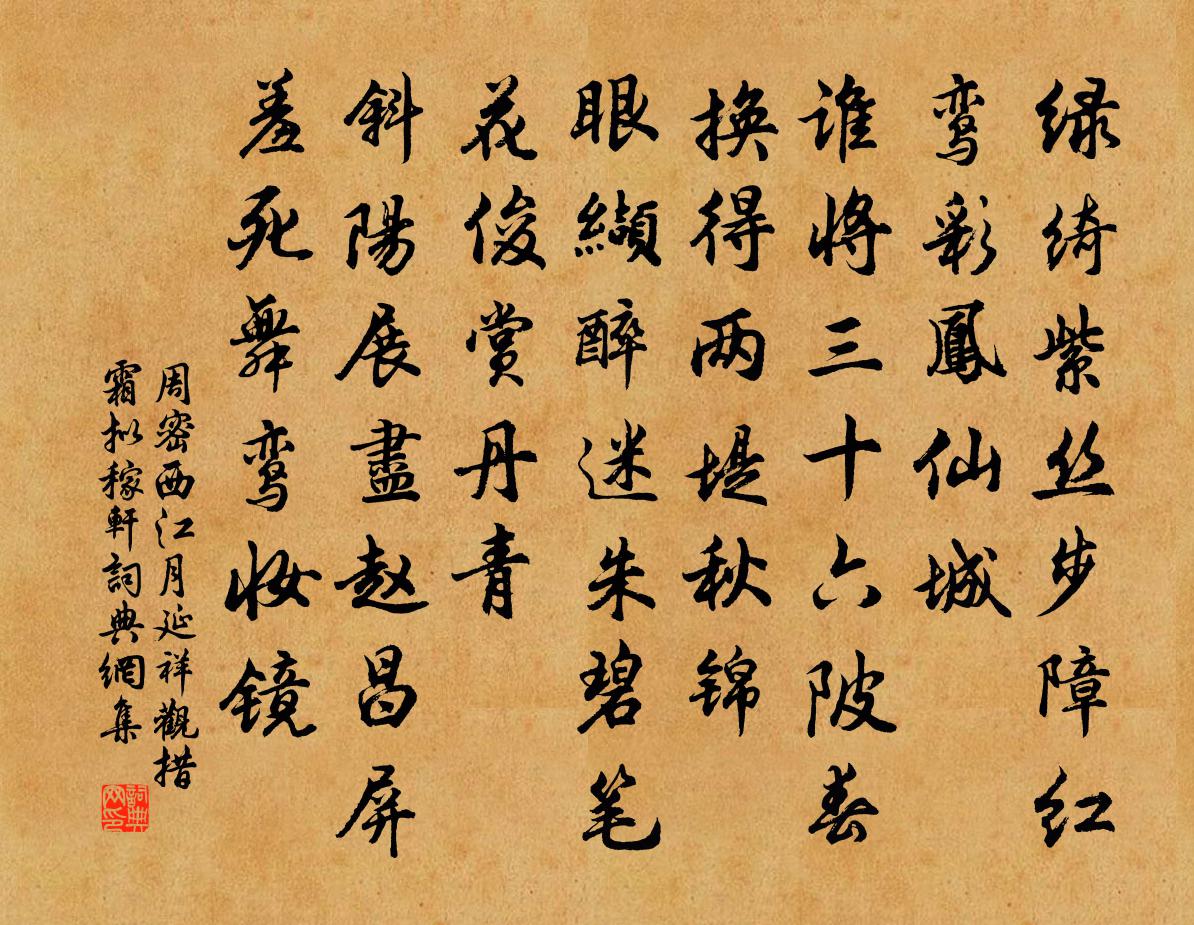 绿绮紫丝步障红
鸾彩鳳仙城
谁将三十六陂春
换得两堤秋锦
眼纈醉迷朱碧笔
花俊赏丹青
斜陽展盡赵昌屏
羞死舞鸾妆镜
周密西江月延祥觀措
霜拟稼軒詞典網集
詞典
网印